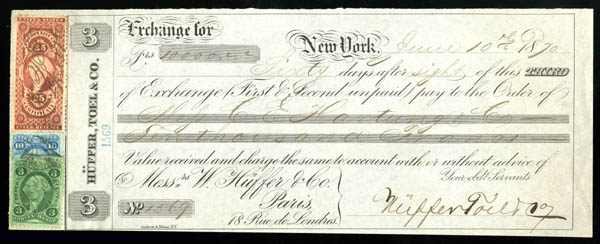 3
Exchange for New York, June 10th 1870
Frs 10000
Sixty days after sight of this THIRD
of Exchange (First & Second unpaid) pay to the Order of
C E & Co
Ten thousand Francs
Value received and charge the same to account with or without advice of
To Messrs W. Hüffer & Co. Your obdt. Servants
Paris, Hüffer Toel & Co
No. 1569 18 Rue de Londres.
3
HÜFFER, TOEL & CO.
1569
25 25
U.S. INTER. REVENUE
10 10
3 3